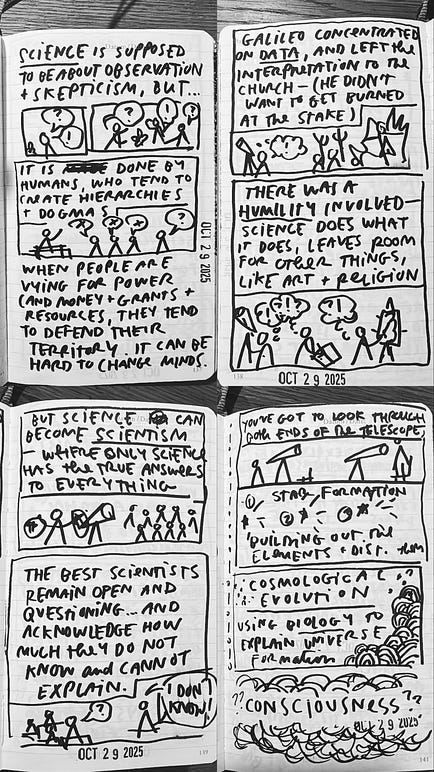 SCIENCE IS SUPPOSED
TO BE ABOUT OBSERVATION
+ SKEPTICISM, BUT...
IT IS DONE BY
HUMANS, WHO TEND TO
CREATE HIERARCHIES
+ DOGMAS
?
OCT 29 2025
WHEN PEOPLE ARE
VYING FOR POWER
(AND MONEY + GRANTS +
RESOURCES, THEY TEND
TO DEFEND THEIR
TERRITORY. IT CAN BE
HARD TO CHANGE MINDS.
GALILEO CONCENTRATED
ON DATA, AND LEFT the
INTERPRETATION TO the
CHURCH - (HE DIDN'T
WANT TO GET BURNED
AT the STAKE)
THERE WAS A
HUMILITY INVOLVED—
SCIENCE DOES WHAT
IT DOES, LEAVES ROOM
FOR OTHER THINGS,
LIKE ART + RELIGION
OCT 29 2025
BUT SCIENCE CAN
BECOME SCIENTISM
— WHERE ONLY SCIENCE
HAS the TRUE ANSWERS
TO EVERYTHING
THE BEST SCIENTISTS
REMAIN OPEN AND
QUESTIONING... AND
ACKNOWLEDGE HOW
MUCH they DO NOT
KNOW and CANNOT
EXPLAIN.
?
I DON'T
KNOW!
OCT 29 2025
139
YOU'VE GOT TO LOOK THROUGH
BOTH ENDS OF the TELESCOPE,
① STAR FORMATION
②
③
BUILDING OUT the
ELEMENTS + DIST. them
COSMOLOGICAL
EVOLUTION
USING BIOLOGY TO
EXPLAIN UNIVERSE
Formation
?? CONSCIOUSNESS ??
OCT 29 2025
141